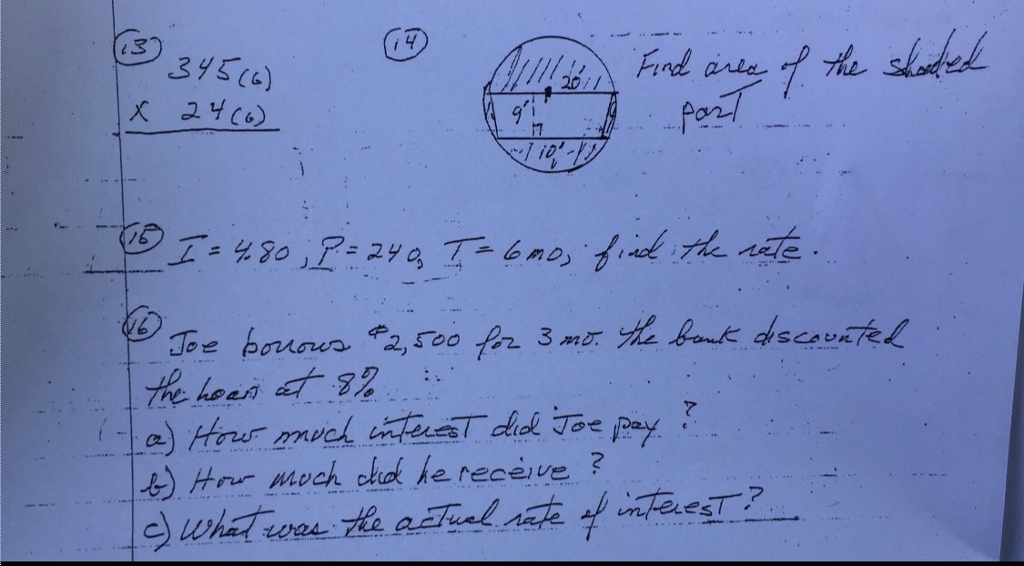 (13) 345(6)
x 24(6)
(14) 20'
9'
10'
Find area of the shaded
part
(15) I = 4.80, P = 240, T = 6 mo, find the rate.
(16) Joe borrows $2,500 for 3 mo. the bank discounted
the loan at 8%
a) How much interest did Joe pay?
b) How much did he receive?
c) What was the actual rate of interest?